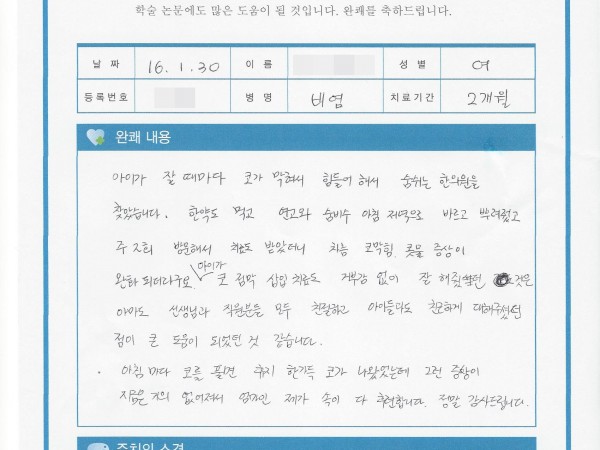 학술 논문에도 많은 도움이 될 것입니다. 완쾌를 축하드립니다.
날 짜 16. 1. 30 이 름 성 별 여
등록번호 병 명 비염 치료기간 2개월
완쾌 내용
아이가 잘 때마다 코가 막혀서 힘들어 해서 숨쉬는 한의원을
찾았습니다. 한약도 먹고 연고와 숨비수 아침 저녁으로 바르고 뿌려줬고
주 2회 방문해서 치료도 받았더니 차츰 코막힘, 콧물 증상이
완화 되더라구요 아이가 코 점막 삽입 치료도 거부감 없이 잘 해줬던 것은
아마도 선생님과 직원분들 모두 친절하고 아이들다도 친근하게 대해주셨던
점이 큰 도움이 되었던 것 같습니다.
· 아침마다 코를 풀면 휴지 한가득 코가 나왔었는데 그런 증상이
지금은 거의 없어져서 엄마인 제가 속이 다 후련합니다. 정말 감사드립니다.
주치의 소견